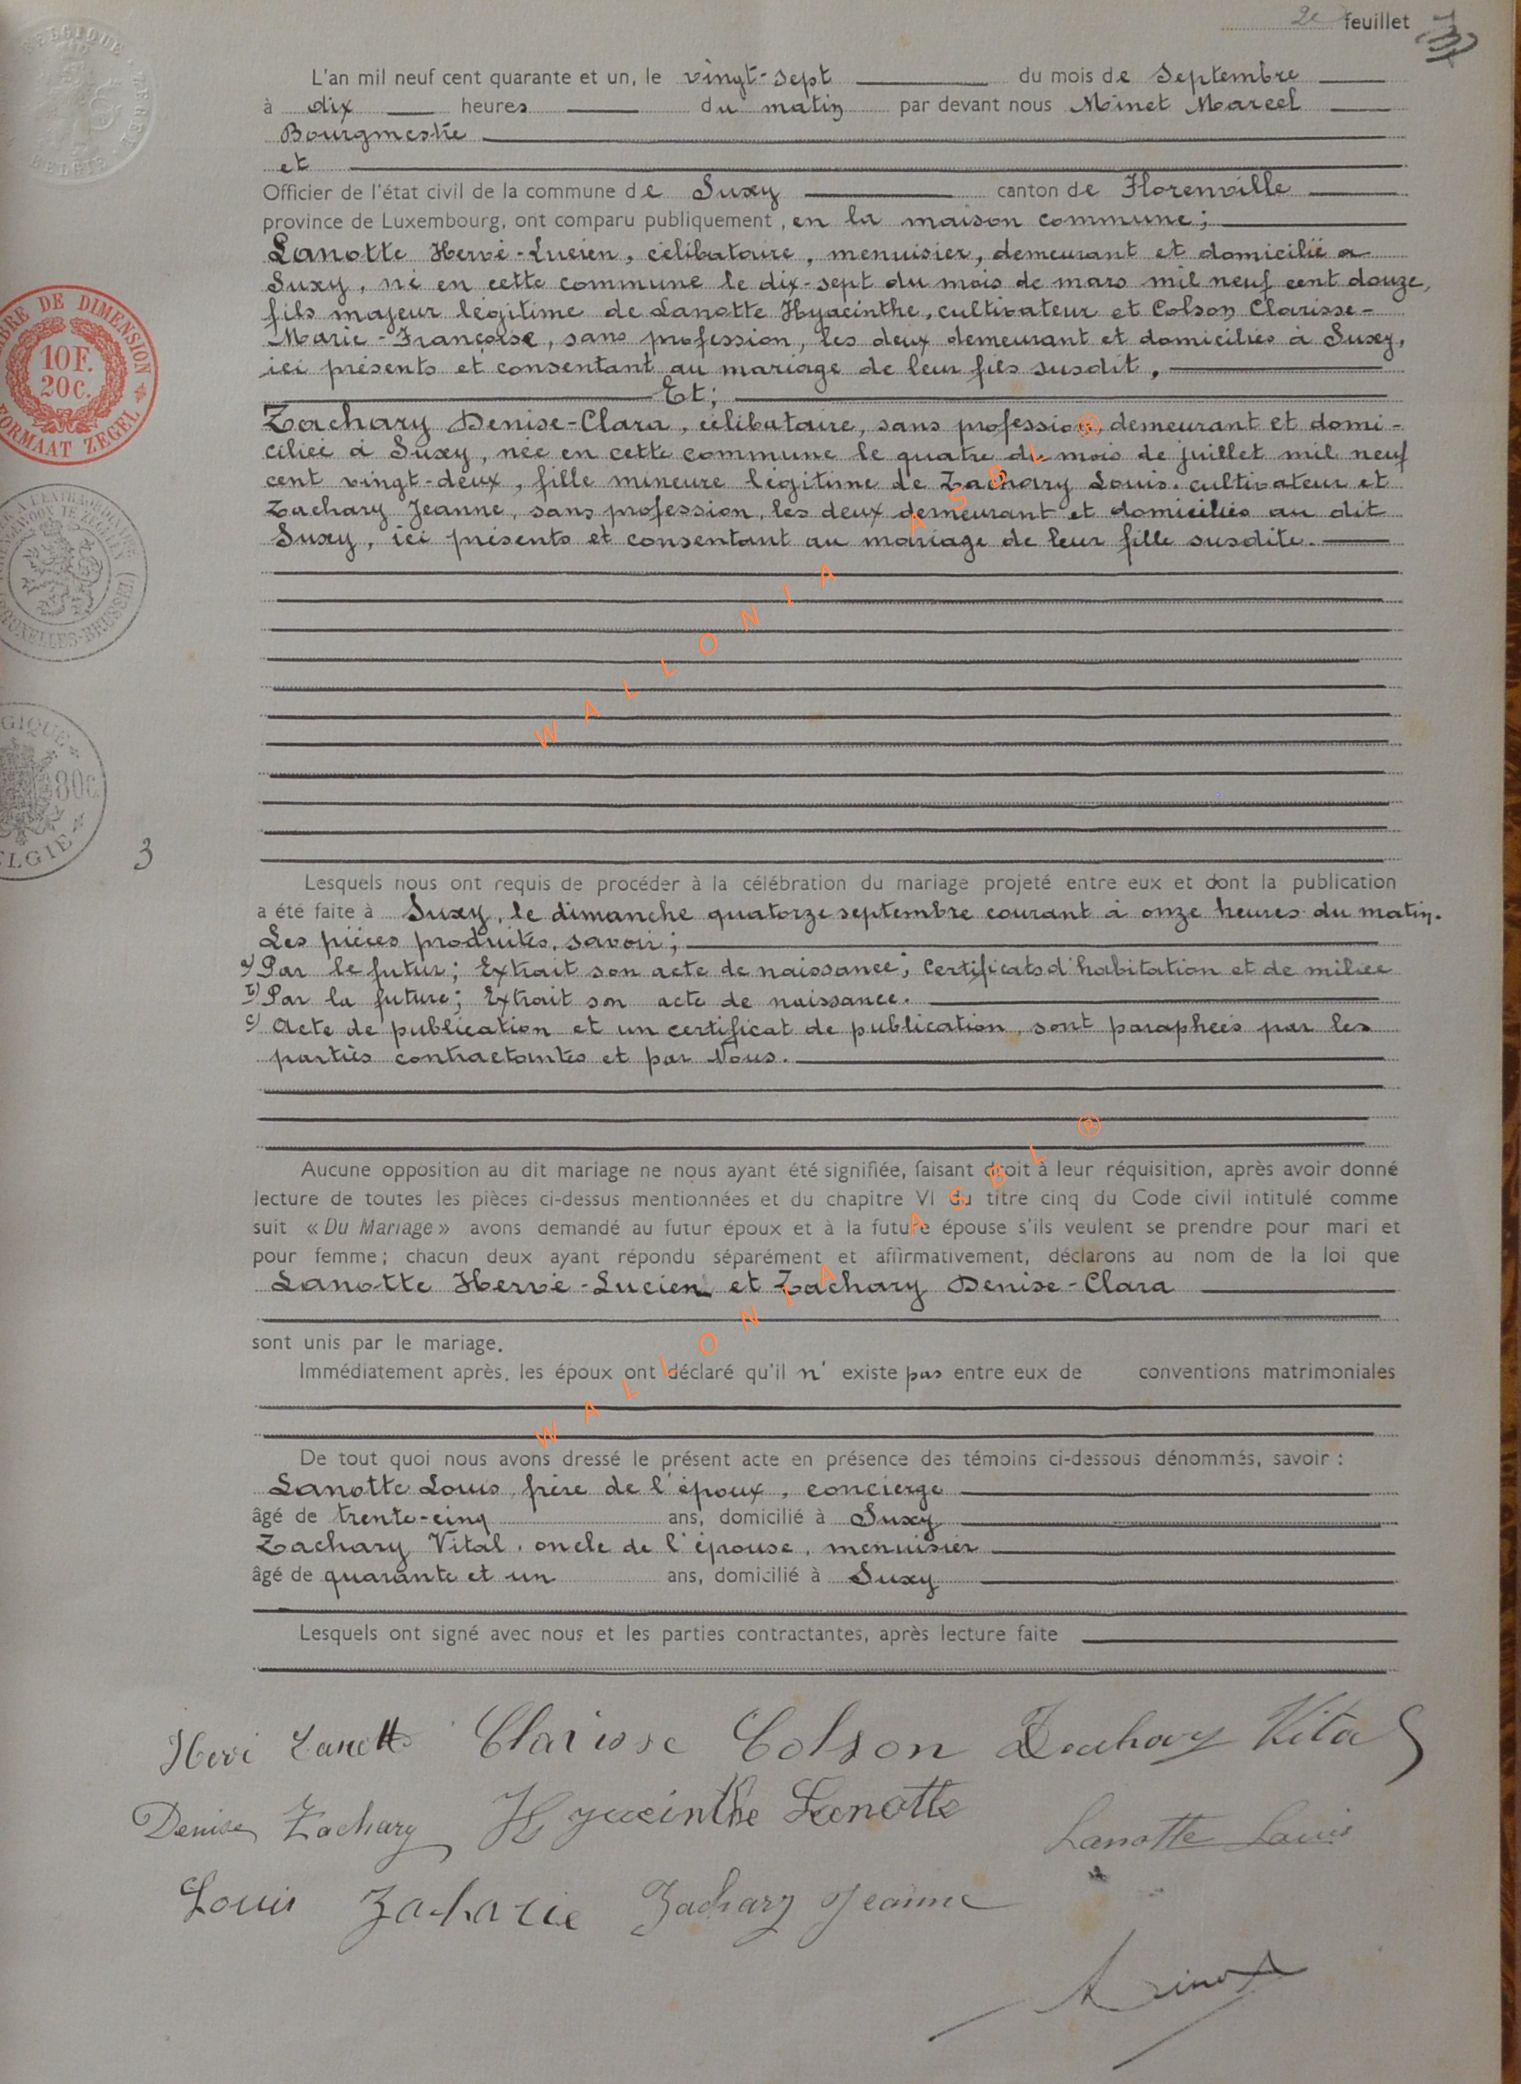 2e feuillet
L'an mil neuf cent quarante et un, le vingt-sept du mois de Septembre
à dix heures du matin par devant nous Minet Marcel
Bourgmestre
et
Officier de l'état civil de la commune de Suxy canton de Florenville
province de Luxembourg, ont comparu publiquement, en la maison commune;
Lanotte Hervé-Lucien, célibataire, menuisier, demeurant et domicilié à
Suxy, né en cette commune le dix-sept du mois de mars mil neuf cent douze,
fils majeur légitime de Lanotte Hyacinthe, cultivateur et Colson Clarisse-
Marie-Françoise, sans profession, les deux demeurant et domiciliés à Suxy,
ici présents et consentant au mariage de leur fils susdit.
Et;
Zachary Denise-Clara, célibataire, sans profession demeurant et domi-
ciliée à Suxy, née en cette commune le quatre du mois de juillet mil neuf
cent vingt-deux, fille mineure légitime de Zachary Louis. cultivateur et
Zachary Jeanne, sans profession, les deux demeurant et domiciliés au dit
Suxy, ici présents et consentant au mariage de leur fille susdite.
WALLONIA ASBL ®
3
Lesquels nous ont requis de procéder à la célébration du mariage projeté entre eux et dont la publication
a été faite à Suxy, le dimanche quatorze septembre courant à onze heures du matin.
Les pièces produites, savoir;
a) Par le futur; Extrait son acte de naissance; Certificats d'habitation et de milice
b) Par la future; Extrait son acte de naissance.
c) Acte de publication et un certificat de publication, sont paraphées par les
parties contractantes et par Nous.
Aucune opposition au dit mariage ne nous ayant été signifiée, faisant droit à leur réquisition, après avoir donné
lecture de toutes les pièces ci-dessus mentionnées et du chapitre VI du titre cinq du Code civil intitulé comme
suit « Du Mariage » avons demandé au futur époux et à la future épouse s'ils veulent se prendre pour mari et
pour femme; chacun deux ayant répondu séparément et affirmativement, déclarons au nom de la loi que
Lanotte Hervé-Lucien et Zachary Denise-Clara
WALLONIA ASBL ®
sont unis par le mariage.
Immédiatement après, les époux ont déclaré qu'il n' existe pas entre eux de conventions matrimoniales
De tout quoi nous avons dressé le présent acte en présence des témoins ci-dessous dénommés, savoir :
Lanotte Louis, frère de l'époux, concierge
âgé de trente-cinq ans, domicilié à Suxy
Zachary Vital, oncle de l'épouse, menuisier
âgé de quarante et un ans, domicilié à Suxy
Lesquels ont signé avec nous et les parties contractantes, après lecture faite
Hervé Lanotte Clarisse Colson Zachary Vital
Denise Zachary Hyacinthe Lanotte Lanotte Louis
Louis Zacharie Zachary Jeanne
BELGIQUE
BELGIË
TIMBRE DE DIMENSION
10F.
20c.
FORMAAT ZEGEL
BRUXELLES-BRUSSEL
BELGIQUE
80c
BELGIE